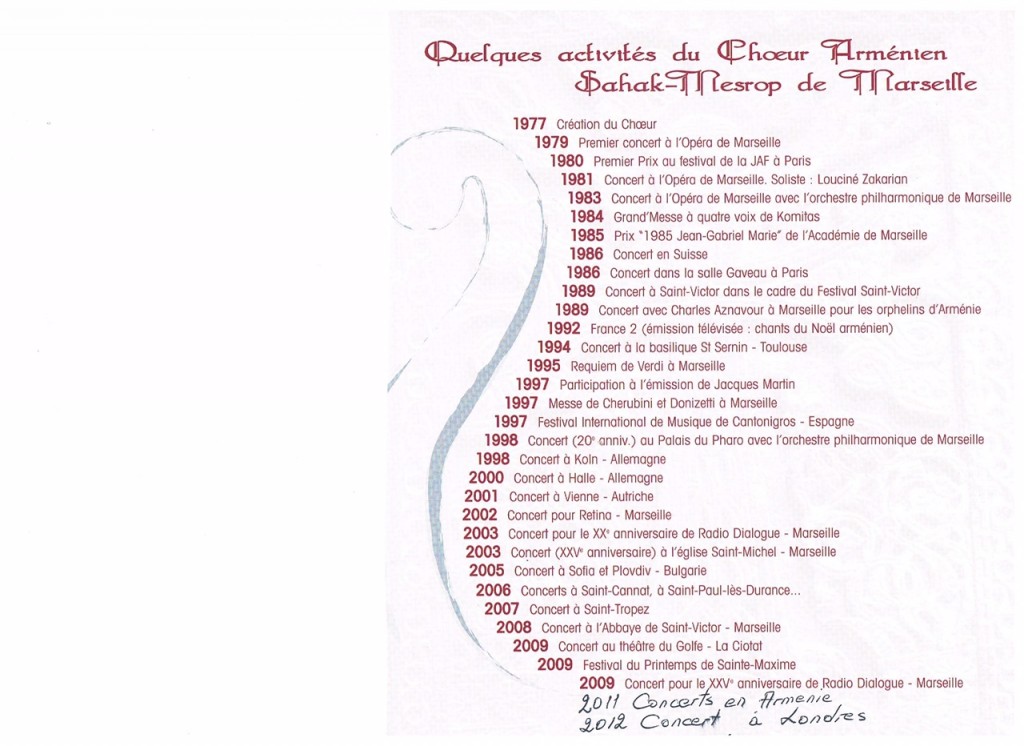 Quelques activités du Chœur Arménien
Sahak-Mesrop de Marseille
1977 Création du Chœur
1979 Premier concert à l'Opéra de Marseille
1980 Premier Prix au festival de la JAF à Paris
1981 Concert à l'Opéra de Marseille. Soliste : Louciné Zakarian
1983 Concert à l'Opéra de Marseille avec l'orchestre philharmonique de Marseille
1984 Grand'Messe à quatre voix de Komitas
1985 Prix "1985 Jean-Gabriel Marie" de l'Académie de Marseille
1986 Concert en Suisse
1986 Concert dans la salle Gaveau à Paris
1989 Concert à Saint-Victor dans le cadre du Festival Saint-Victor
1989 Concert avec Charles Aznavour à Marseille pour les orphelins d'Arménie
1992 France 2 (émission télévisée : chants du Noël arménien)
1994 Concert à la basilique St Sernin - Toulouse
1995 Requiem de Verdi à Marseille
1997 Participation à l'émission de Jacques Martin
1997 Messe de Cherubini et Donizetti à Marseille
1997 Festival International de Musique de Cantonigros - Espagne
1998 Concert (20e anniv.) au Palais du Pharo avec l'orchestre philharmonique de Marseille
1998 Concert à Koln - Allemagne
2000 Concert à Halle - Allemagne
2001 Concert à Vienne - Autriche
2002 Concert pour Retina - Marseille
2003 Concert pour le XXe anniversaire de Radio Dialogue - Marseille
2003 Concert (XXVe anniversaire) à l'église Saint-Michel - Marseille
2005 Concert à Sofia et Plovdiv - Bulgarie
2006 Concerts à Saint-Cannat, à Saint-Paul-lès-Durance...
2007 Concert à Saint-Tropez
2008 Concert à l'Abbaye de Saint-Victor - Marseille
2009 Concert au théâtre du Golfe - La Ciotat
2009 Festival du Printemps de Sainte-Maxime
2009 Concert pour le XXVe anniversaire de Radio Dialogue - Marseille
2011 Concerts en Armenie
2012 Concert à Londres